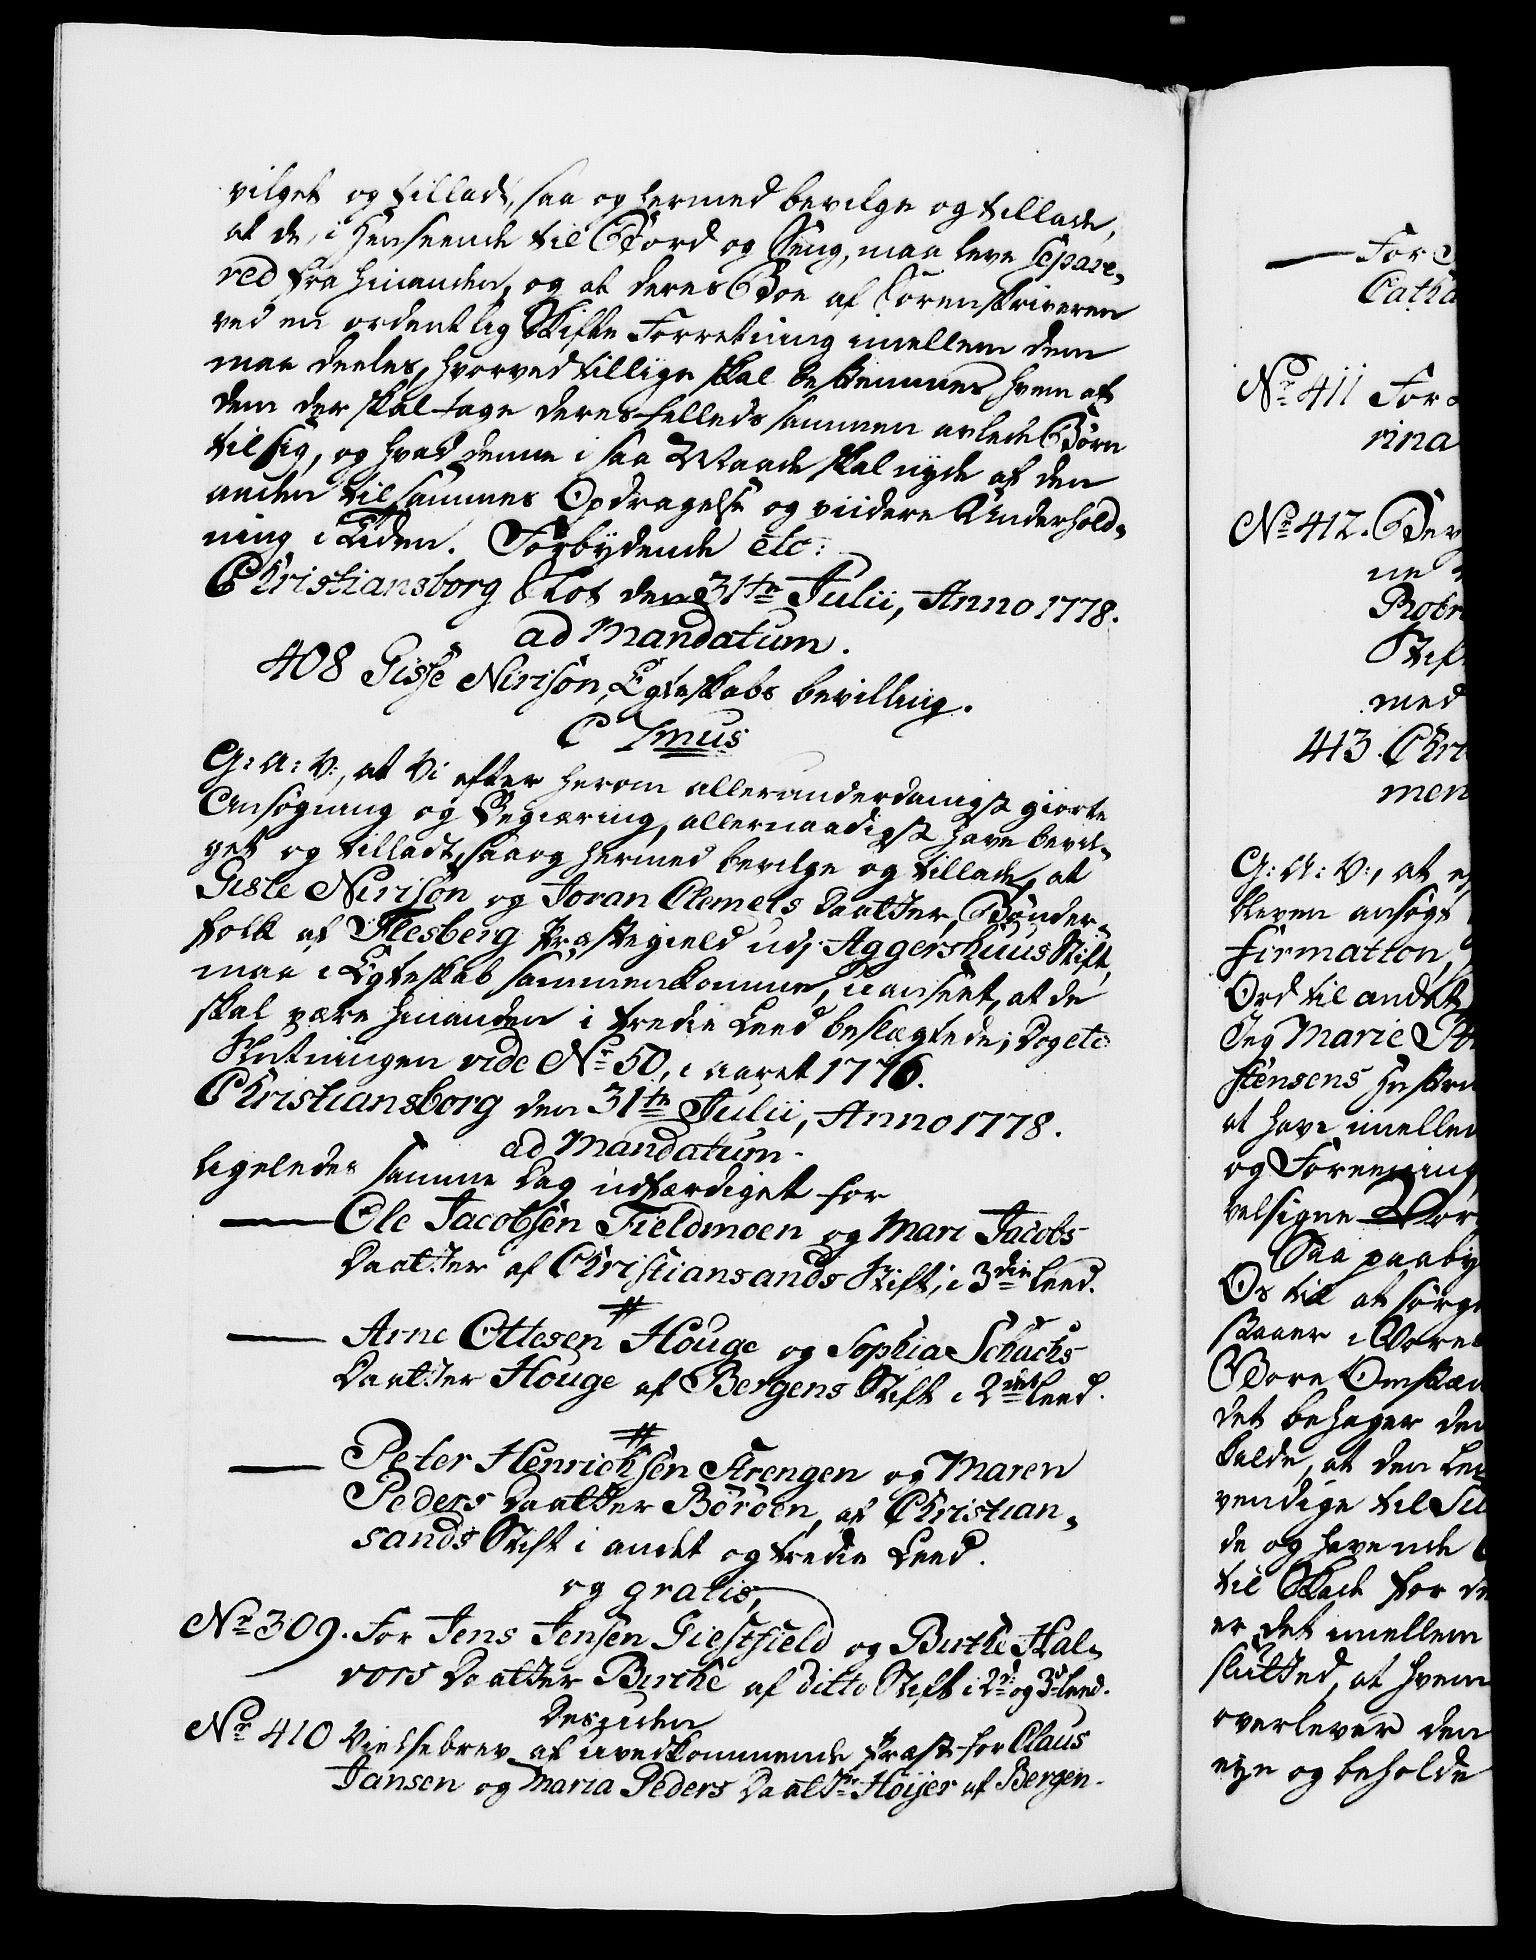 vilget og tilladt, saa og hermed bevilge og tillade,
at de, i Henseende til Bord og Seng, maa leve separe¬
red fra hinanden, og at deres Boe af Sorenskriveren
ved en ordentlig Skifte Forretning imellem dem
maa deeles, hvorved tillige skal bestemmes hvem af
dem der skal tage deres fælleds sammen avlede Børn
til sig, og hvad denne i saa Maade skal nyde af den
anden til sammes Opdragelse og viidere Underhold¬
ning i Tiden. Forbydende etc:
Christiansborg Slot den 31te Julii, Anno 1778.
ad Mandatum.
408 Gisle Nirison, Egteskabs bevilling.
C 7mus
G: A: V:, at Vi efter herom allerunderdanigst giorte
Ansøgning og Begiæring, allernaadigst have bevil¬
get og tilladt, saa og hermed bevilge og tillade, at
Gisle Nirison og Joran Clemets Daatter, Bønder¬
folk af Flesberg Præstegield udi Aggershuus Stift,
maa i Egteskab sammenkomme, uanseet, at de
skal være hinanden i tredie Leed beslægtede; Dog etc
Slutningen vide No 50, i aaret 1776.
Christiansborg den 31te Julii, Anno 1778.
ad Mandatum.
ligeledes samme Dag udfærdiget for
— Ole Jacobsen Fieldmoen og Mari Jacobs
Daatter af Christiansands Stift, i 3die Leed.
#
— Arne Ottesen Houge og Sophia Schachs
Daatter Houge af Bergens Stift i 2det Leed.
#
— Peter Henrichsen Strengen og Maren
Peders Daatter Böröen, af Christian¬
sands Stift i andet og tredie Leed.
og gratis,
No 309. For Jens Jensen Giestfield og Birthe Hal¬
vors Daatter Birthe af ditto Stift i 2d og 3d Leed.
Desuden
No 410 Vielsebrev af uvedkommende Præst for Claus
Jansen og Maria Peders Daatter Höijer af Bergen.
— For
Catha
No 411 For
rina
No 412. Bev
ne
Stif
med
413. Chri
men
G: A: V:, at
kleven ansøgt
firmation,
Ord til andet
Jeg Marie
stensens Hustru
at have imellem
og Forening
velsigne Vor
Saa paaby
Os til at sørge
staaer i Vores
Vore Omstæn
det behager den
kalde, at den Lev
vendige til
de og havende
til Skade for de
er det imellem
slutted, at hvem
overlever den
eye og beholde